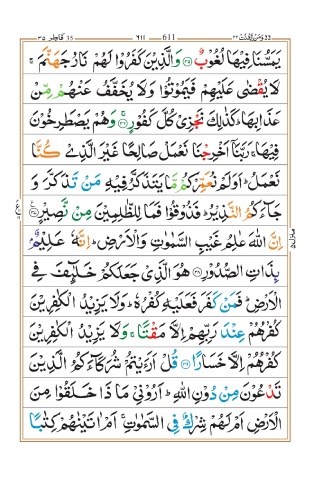 فاطر ٣٥ ٦١١ 611 ومن يقنت ٢٢
يَمَسُّنَا فِيْهَا لُغُوْبٌ ۝٣٥ وَالَّذِيْنَ كَفَرُوْا لَهُمْ نَارُ جَهَنَّمَ ۚ
لَا يُقْضٰى عَلَيْهِمْ فَيَمُوْتُوْا وَلَا يُخَفَّفُ عَنْهُمْ مِّنْ
عَذَابِهَا ؕ كَذٰلِكَ نَجْزِيْ كُلَّ كَفُوْرٍ ۝٣٦ وَهُمْ يَصْطَرِخُوْنَ
فِيْهَا ۚ رَبَّنَآ اَخْرِجْنَا نَعْمَلْ صَالِحًا غَيْرَ الَّذِيْ كُنَّا
نَعْمَلُ ؕ اَوَلَمْ نُعَمِّرْكُمْ مَّا يَتَذَكَّرُ فِيْهِ مَنْ تَذَكَّرَ وَ
جَآءَكُمُ النَّذِيْرُ ؕ فَذُوْقُوْا فَمَا لِلظّٰلِمِيْنَ مِنْ نَّصِيْرٍ ۝٣٧
اِنَّ اللّٰهَ عٰلِمُ غَيْبِ السَّمٰوٰتِ وَالْاَرْضِ ؕ اِنَّهٗ عَلِيْمٌۢ
بِذَاتِ الصُّدُوْرِ ۝٣٨ هُوَ الَّذِيْ جَعَلَكُمْ خَلٰٓئِفَ فِي
الْاَرْضِ ؕ فَمَنْ كَفَرَ فَعَلَيْهِ كُفْرُهٗ ؕ وَلَا يَزِيْدُ الْكٰفِرِيْنَ
كُفْرُهُمْ عِنْدَ رَبِّهِمْ اِلَّا مَقْتًا ۚ وَلَا يَزِيْدُ الْكٰفِرِيْنَ
كُفْرُهُمْ اِلَّا خَسَارًا ۝٣٩ قُلْ اَرَءَيْتُمْ شُرَكَآءَكُمُ الَّذِيْنَ
تَدْعُوْنَ مِنْ دُوْنِ اللّٰهِ ؕ اَرُوْنِيْ مَا ذَا خَلَقُوْا مِنَ
الْاَرْضِ اَمْ لَهُمْ شِرْكٌ فِي السَّمٰوٰتِ ۚ اَمْ اٰتَيْنٰهُمْ كِتٰبًا